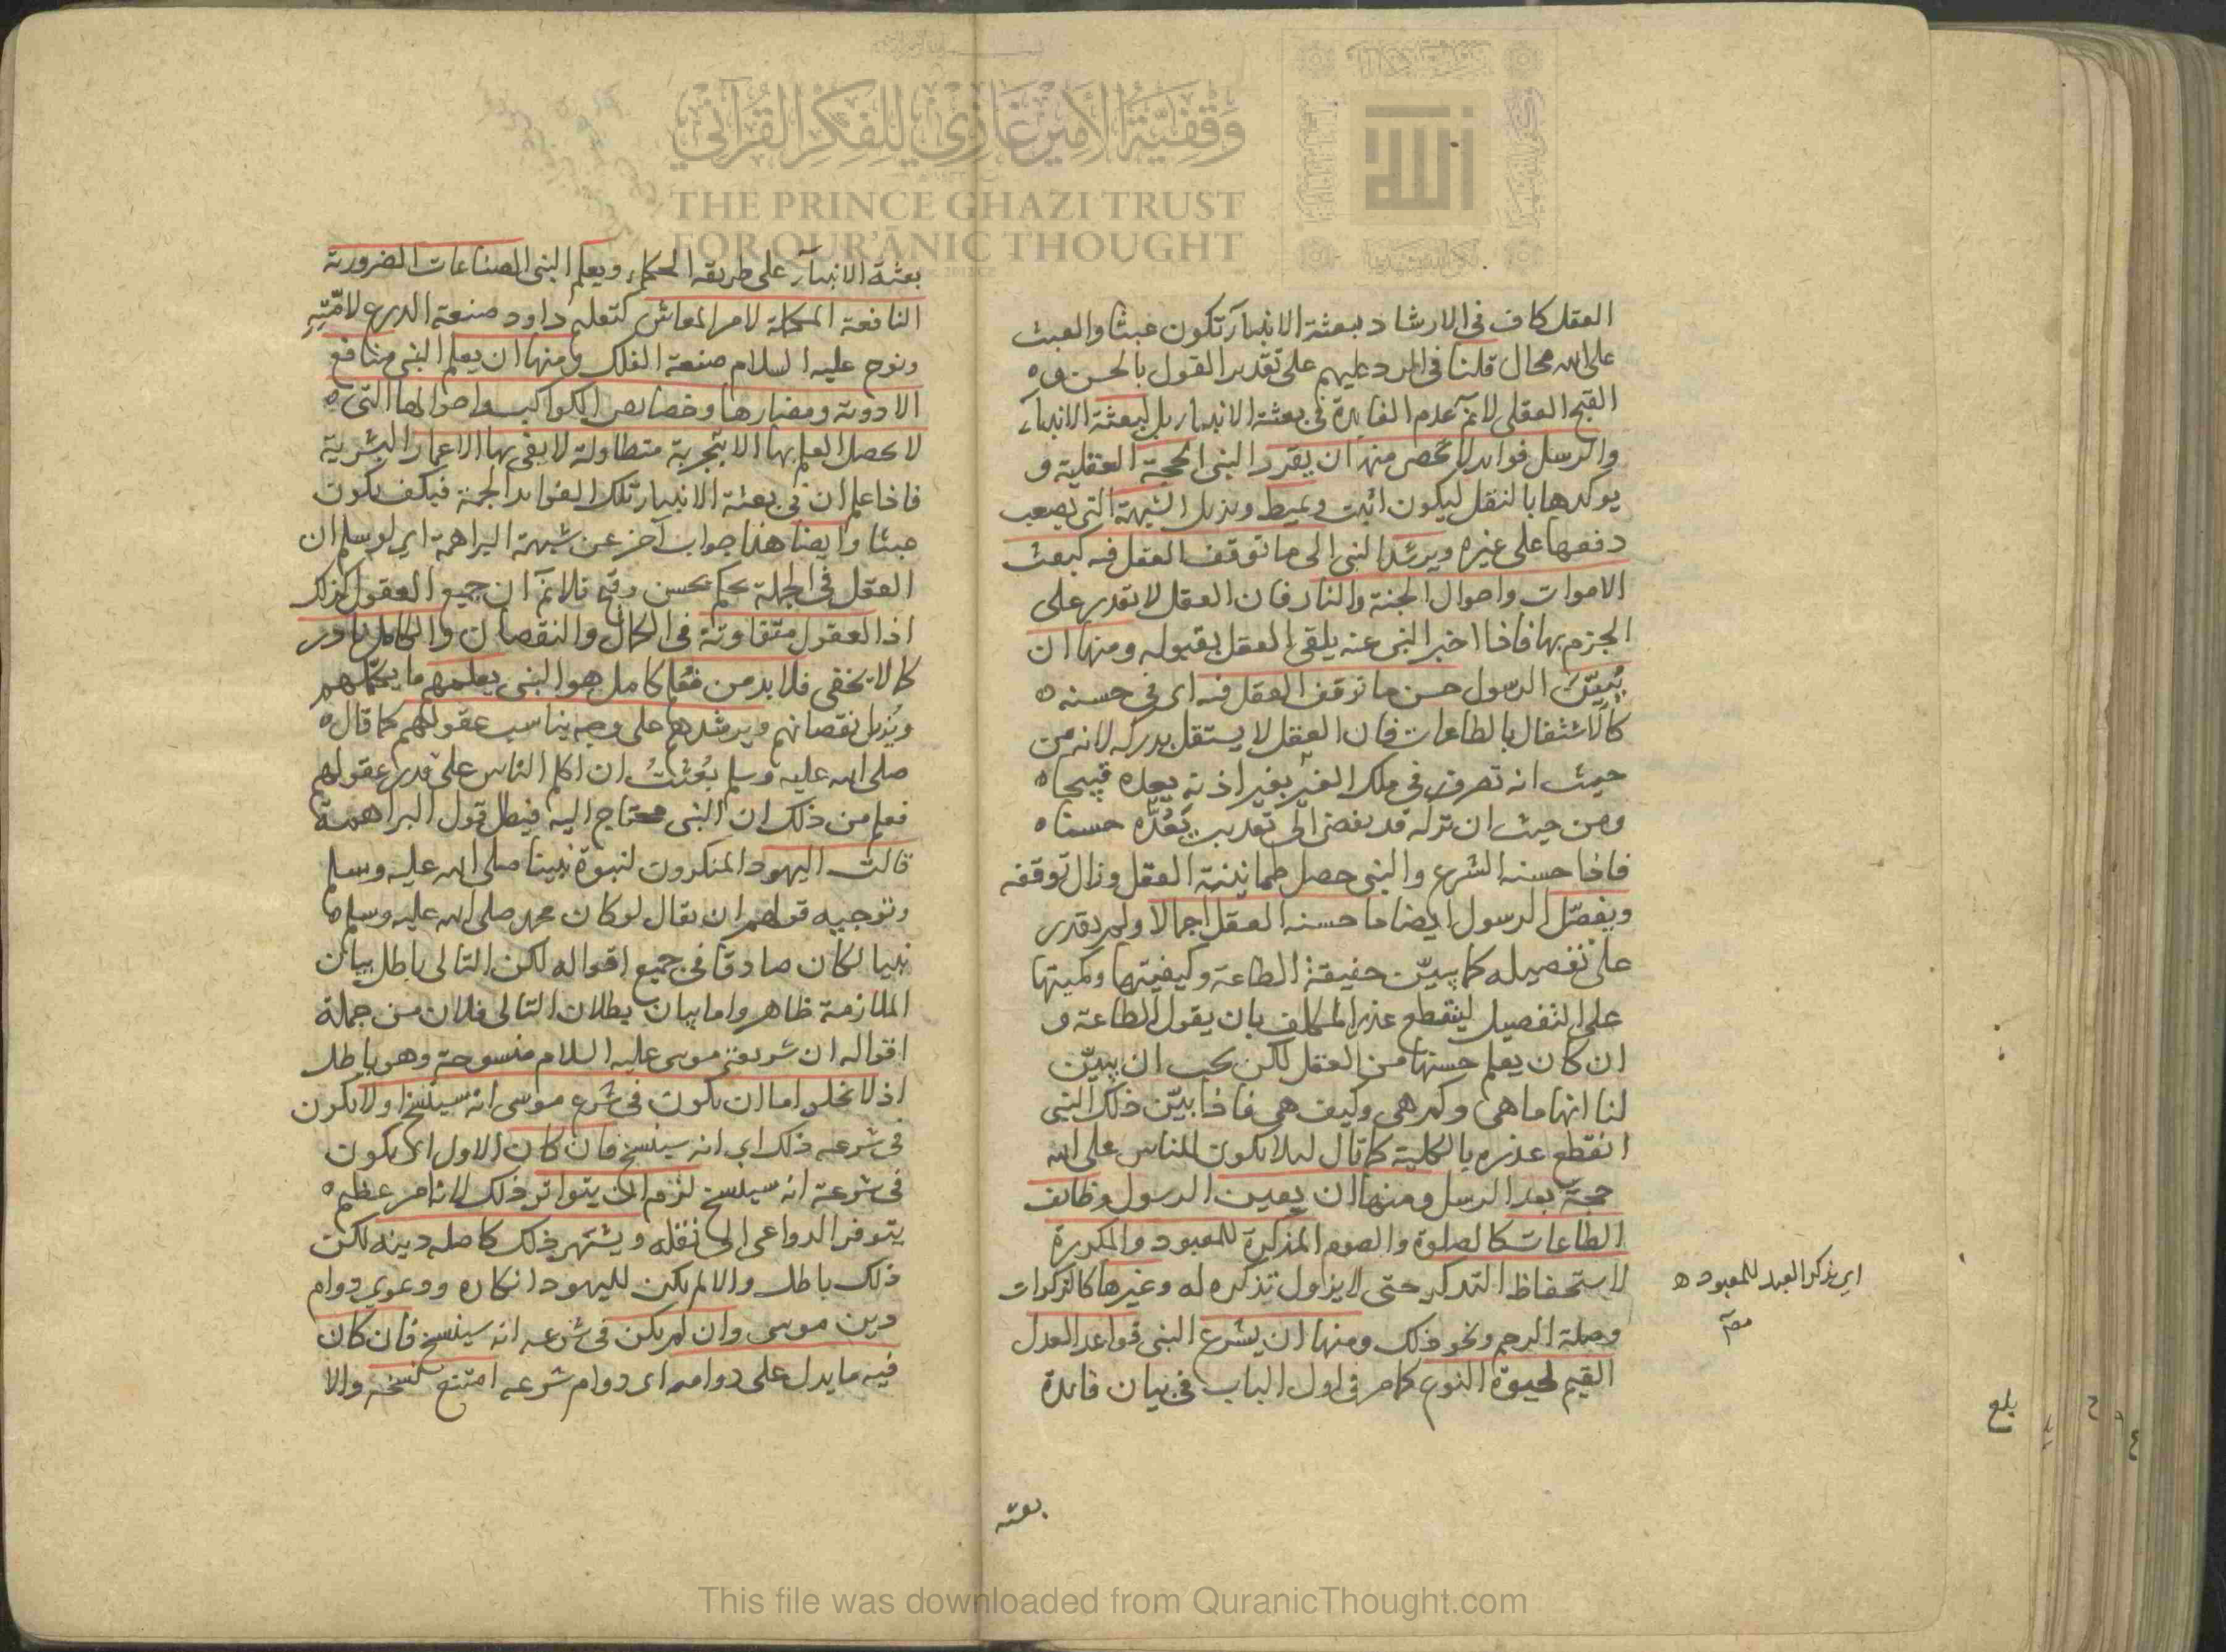 وقفية الأمير غازي للفكر القرآني
THE PRINCE GHAZI TRUST
FOR QUR'ĀNIC THOUGHT
الله
العقل كاف في الارشاد فبعثة الانبيآء تكون عبثا والعبث
على الله محال قلنا في الرد عليهم على تقدير القول بالحسن و
القبح العقلي لا نم عدم الفايدة في بعثة الانبياء بل لبعثة الانبياء
والرسل فوايد لا تحصى منها ان يقرر النبي الحجة العقلية و
يوكدها بالنقل ليكون اثبت ويميط ويزيل الشبهة التي يصعب
دفعها على غيره ويرشد النبي الى ما توقف العقل فيه كبعث
الاموات واحوال الجنة والنار فان العقل لا يقدر على
الجزم بها فاذا اخبر النبي عنه يلقى العقل بقبوله ومنها ان
يُبيّن الرسول حسن ما توقف العقل فيه اى في حسنه
كالاشتغال بالطاعات فان العقل لا يستقل بدركه لانه من
حيث انه تصرف في ملك الغير بغير اذنه يعده قبيحا
ومن حيث ان تركه قد يفضي الى تعذيب يَعُدّه حسنا
فاذا حسنه الشرع والنبي حصل طمانينة العقل وزال توقفه
ويفصّل الرسول ايضا ما حسنه العقل اجمالا ولم يقدر
على تفصيله كما يبيّن حقيقة الطاعة وكيفيتها وكميتها
على التفصيل لينقطع عذر المكلف بان يقول الطاعة و
ان كان يعلم حسنها من العقل لكن يجب ان يبيّن
لنا انها ما هي وكم هي وكيف هي فاذا بيّن ذلك النبي
انقطع عذره بالكلية كما قال ليلا يكون للناس على الله
حجة بعد الرسل ومنها ان يعين الرسول وظايف
الطاعات كالصلوة والصوم المذكرة للمعبود والمكررة
لاستحفاظ التذكير حتى لا يزاول تذكره له وغيرها كالزكوات
اى يذكر العبد للمعبود
وصلة الرحم ونحو ذلك ومنها ان يشرع النبي قواعد العدل
القيم لحيوة النوع كما مر في اول الباب في بيان فايدة
بلغ
بعثة
بعثة الانبيآء على طريقة الحكماء ويعلم النبي الصناعات الضرورية
النافعة المكملة لامر المعاش كتعليم داود صنعة الدرع لامّتِهِ
ونوح عليه السلام صنعة الفلك ومنها ان يعلم النبي منافع
الادوية ومضارها وخصايص الكواكب واحوالها التي
لا يحصل العلم بها الا بتجربة متطاولة لا يفى بها الاعمار البشرية
فاذا علم ان في بعثة الانبياء تلك الفوايد الجمة فكيف يكون
عبثا وايضا هذا جواب آخر عن شبهة البراهمة اى لو سلم ان
العقل في الجملة يحكم بحسن وقبح فلا نم ان جميع العقول كذلك
اذ العقول متفاوتة في الكمال والنقصان والكامل نادر
كما لا يخفى فلا بد من معلم كامل هو النبي يعلمهم ما يكملهم
ويُزيل نقصانهم ويرشدهم على وجه يناسب عقولهم كما قال
صلى الله عليه وسلم بُعثتُ ان اكلم الناس على قدر عقولهم
فعلم من ذلك ان النبي محتاج اليه فيبطل قول البراهمة
قالت اليهود المنكرون لنبوة نبينا صلى الله عليه وسلم
وتوجيه قولهم ان يقال لو كان محمد صلى الله عليه وسلم
نبيا لكان صادقا في جميع اقواله لكن التالى باطل بيان
الملازمة ظاهر واما بيان بطلان التالى فلان من جملة
اقواله ان شريعة موسى عليه السلام منسوخة وهو باطل
اذ لا يخلو اما ان يكون في شرع موسى انه سينسخ او لا يكون
في شرعه ذلك اى انه سينسخ فان كان الاول اى يكون
في شرعه انه سينسخ لزم ان يتواتر ذلك لانه امر عظيم
يتوفر الدواعى الى نقله ويشتهر ذلك كاصل دينه لكن
ذلك باطل والا لم يكن لليهود انكاره ودعوى دوام
دين موسى وان لم يكن في شرعه انه سينسخ فان كان
فيه ما يدل على دوامه اى دوام شرعه امتنع نسخه والا
This file was downloaded from QuranicThought.com